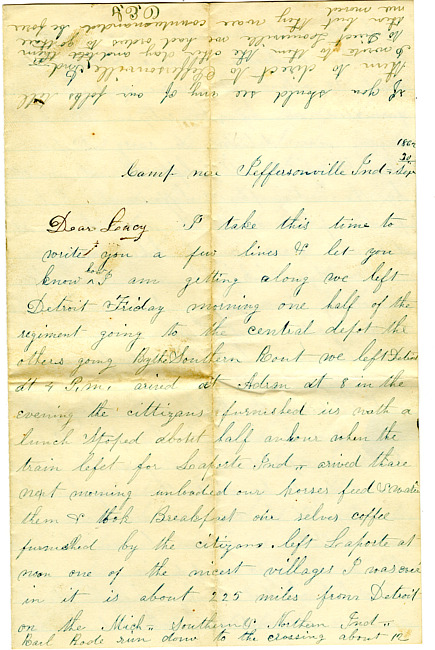 If you should see any of our folks tell
them to direct to Jeffersonville Ind.
I wrote to them the other day and told them
to Direct Louisville we had orders to go there
then but they were countermanded be fore
we moved
1862
20
Camp near Jeffersonville Ind Sept
Dear Loacy I take this time to
write you a few lines & let you
know how I am getting along we left
Detroit Friday morning one half of the
regiment going to the central depot the
others going By the Southern Rout we left Detroit
at 4 P.m, arived at Adrm at 8 in the
evening the cittizans furnished us with a
lunch stoped about half an hour when the
train left for Laporte Ind arived thare
next morning unloaded our horses feed & water
them & took Breakfast our selves coffee
furnished by the citizans left Laporte at
noon one of the nicest villages I was ever
in it is about 225 miles from Detroit
on the Mich " Southern & Northern Ind "
Rail Rode run down to the crossing about 12